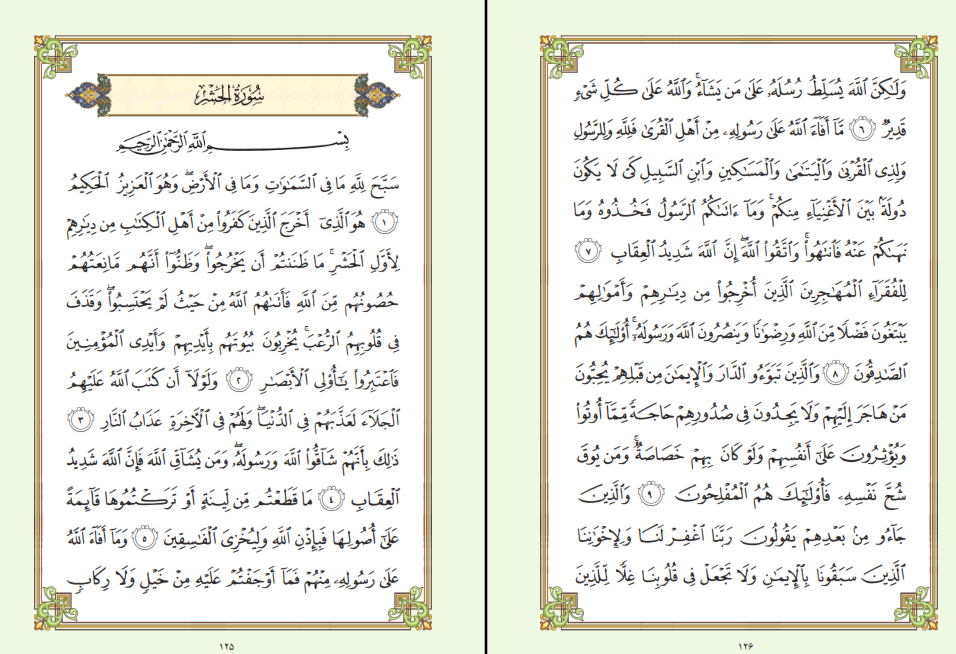 سُورَةُ الحَشْرِ
بِسْمِ اللَّهِ الرَّحْمَٰنِ الرَّحِيمِ
سَبَّحَ لِلَّهِ مَا فِي السَّمَٰوَٰتِ وَمَا فِي الْأَرْضِۖ وَهُوَ الْعَزِيزُ الْحَكِيمُ
﴿١﴾ هُوَ الَّذِيٓ أَخْرَجَ الَّذِينَ كَفَرُوا مِنْ أَهْلِ الْكِتَٰبِ مِن دِيَٰرِهِمْ
لِأَوَّلِ الْحَشْرِۚ مَا ظَنَنتُمْ أَن يَخْرُجُواۖ وَظَنُّوٓا أَنَّهُم مَّانِعَتُهُمْ
حُصُونُهُم مِّنَ اللَّهِ فَأَتَىٰهُمُ اللَّهُ مِنْ حَيْثُ لَمْ يَحْتَسِبُواۖ وَقَذَفَ
فِي قُلُوبِهِمُ الرُّعْبَۚ يُخْرِبُونَ بُيُوتَهُم بِأَيْدِيهِمْ وَأَيْدِي الْمُؤْمِنِينَ
فَاعْتَبِرُوا يَٰٓأُولِي الْأَبْصَٰرِ ﴿٢﴾ وَلَوْلَآ أَن كَتَبَ اللَّهُ عَلَيْهِمُ
الْجَلَآءَ لَعَذَّبَهُمْ فِي الدُّنْيَاۖ وَلَهُمْ فِي الْآخِرَةِ عَذَابُ النَّارِ ﴿٣﴾
ذَٰلِكَ بِأَنَّهُمْ شَآقُّوا اللَّهَ وَرَسُولَهُۥۖ وَمَن يُشَآقِّ اللَّهَ فَإِنَّ اللَّهَ شَدِيدُ
الْعِقَابِ ﴿٤﴾ مَا قَطَعْتُم مِّن لِّينَةٍ أَوْ تَرَكْتُمُوهَا قَآئِمَةً
عَلَىٰٓ أُصُولِهَا فَبِإِذْنِ اللَّهِ وَلِيُخْزِيَ الْفَٰسِقِينَ ﴿٥﴾ وَمَآ أَفَآءَ اللَّهُ
عَلَىٰ رَسُولِهِۦ مِنْهُمْ فَمَآ أَوْجَفْتُمْ عَلَيْهِ مِنْ خَيْلٍ وَلَا رِكَابٍ
١٢٥
وَلَٰكِنَّ اللَّهَ يُسَلِّطُ رُسُلَهُۥ عَلَىٰ مَن يَشَآءُۚ وَاللَّهُ عَلَىٰ كُلِّ شَيْءٍ
قَدِيرٌ ﴿٦﴾ مَّآ أَفَآءَ اللَّهُ عَلَىٰ رَسُولِهِۦ مِنْ أَهْلِ الْقُرَىٰ فَلِلَّهِ وَلِلرَّسُولِ
وَلِذِي الْقُرْبَىٰ وَالْيَتَٰمَىٰ وَالْمَسَٰكِينِ وَابْنِ السَّبِيلِ كَيْ لَا يَكُونَ
دُولَةًۢ بَيْنَ الْأَغْنِيَآءِ مِنكُمْۚ وَمَآ ءَاتَىٰكُمُ الرَّسُولُ فَخُذُوهُ وَمَا
نَهَىٰكُمْ عَنْهُ فَانتَهُواۚ وَاتَّقُوا اللَّهَۖ إِنَّ اللَّهَ شَدِيدُ الْعِقَابِ ﴿٧﴾
لِلْفُقَرَآءِ الْمُهَٰجِرِينَ الَّذِينَ أُخْرِجُوا مِن دِيَٰرِهِمْ وَأَمْوَٰلِهِمْ
يَبْتَغُونَ فَضْلًا مِّنَ اللَّهِ وَرِضْوَٰنًا وَيَنصُرُونَ اللَّهَ وَرَسُولَهُۥٓۚ أُولَٰٓئِكَ هُمُ
الصَّٰدِقُونَ ﴿٨﴾ وَالَّذِينَ تَبَوَّءُو الدَّارَ وَالْإِيمَٰنَ مِن قَبْلِهِمْ يُحِبُّونَ
مَنْ هَاجَرَ إِلَيْهِمْ وَلَا يَجِدُونَ فِي صُدُورِهِمْ حَاجَةً مِّمَّآ أُوتُوا
وَيُؤْثِرُونَ عَلَىٰٓ أَنفُسِهِمْ وَلَوْ كَانَ بِهِمْ خَصَاصَةٌۚ وَمَن يُوقَ
شُحَّ نَفْسِهِۦ فَأُولَٰٓئِكَ هُمُ الْمُفْلِحُونَ ﴿٩﴾ وَالَّذِينَ
جَآءُو مِنۢ بَعْدِهِمْ يَقُولُونَ رَبَّنَا اغْفِرْ لَنَا وَلِإِخْوَٰنِنَا
الَّذِينَ سَبَقُونَا بِالْإِيمَٰنِ وَلَا تَجْعَلْ فِي قُلُوبِنَا غِلًّا لِّلَّذِينَ
١٢٦